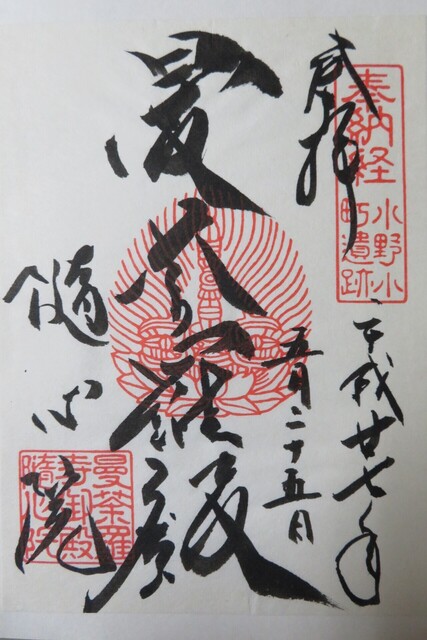 奉拝
奉納経
小野小町遺跡
平成廿七年
五月二十五日
隨心院
曼荼羅
寺御殿
隨心院